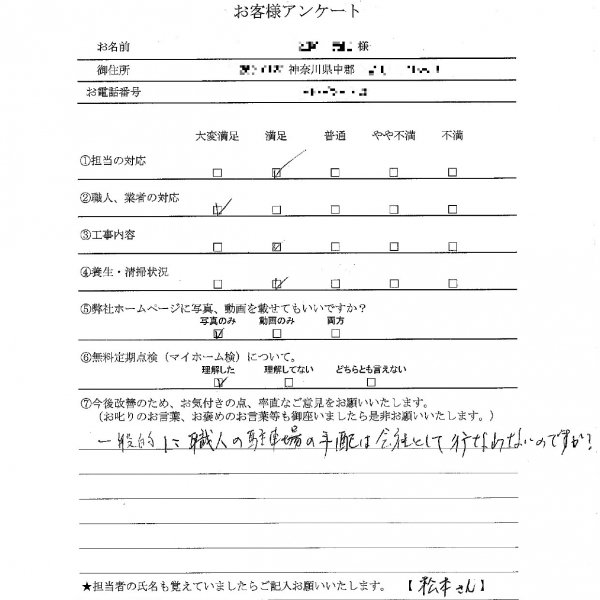 お客様アンケート
お名前 様
御住所 神奈川県中郡
お電話番号
大変満足 満足 普通 やや不満 不満
①担当の対応
②職人、業者の対応
③工事内容
④養生・清掃状況
⑤弊社ホームページに写真、動画を載せてもいいですか？
写真のみ 動画のみ 両方
⑥無料定期点検（マイホーム検）について。
理解した 理解してない どちらとも言えない
⑦今後改善のため、お気付きの点、率直なご意見をお願いいたします。
（お叱りのお言葉、お褒めのお言葉等も御座いましたら是非お願いいたします。）
一般的に職人の駐車場の手配は会社として行なわないのですか？
★担当者の氏名も覚えていましたらご記入お願いいたします。 【松本さん】